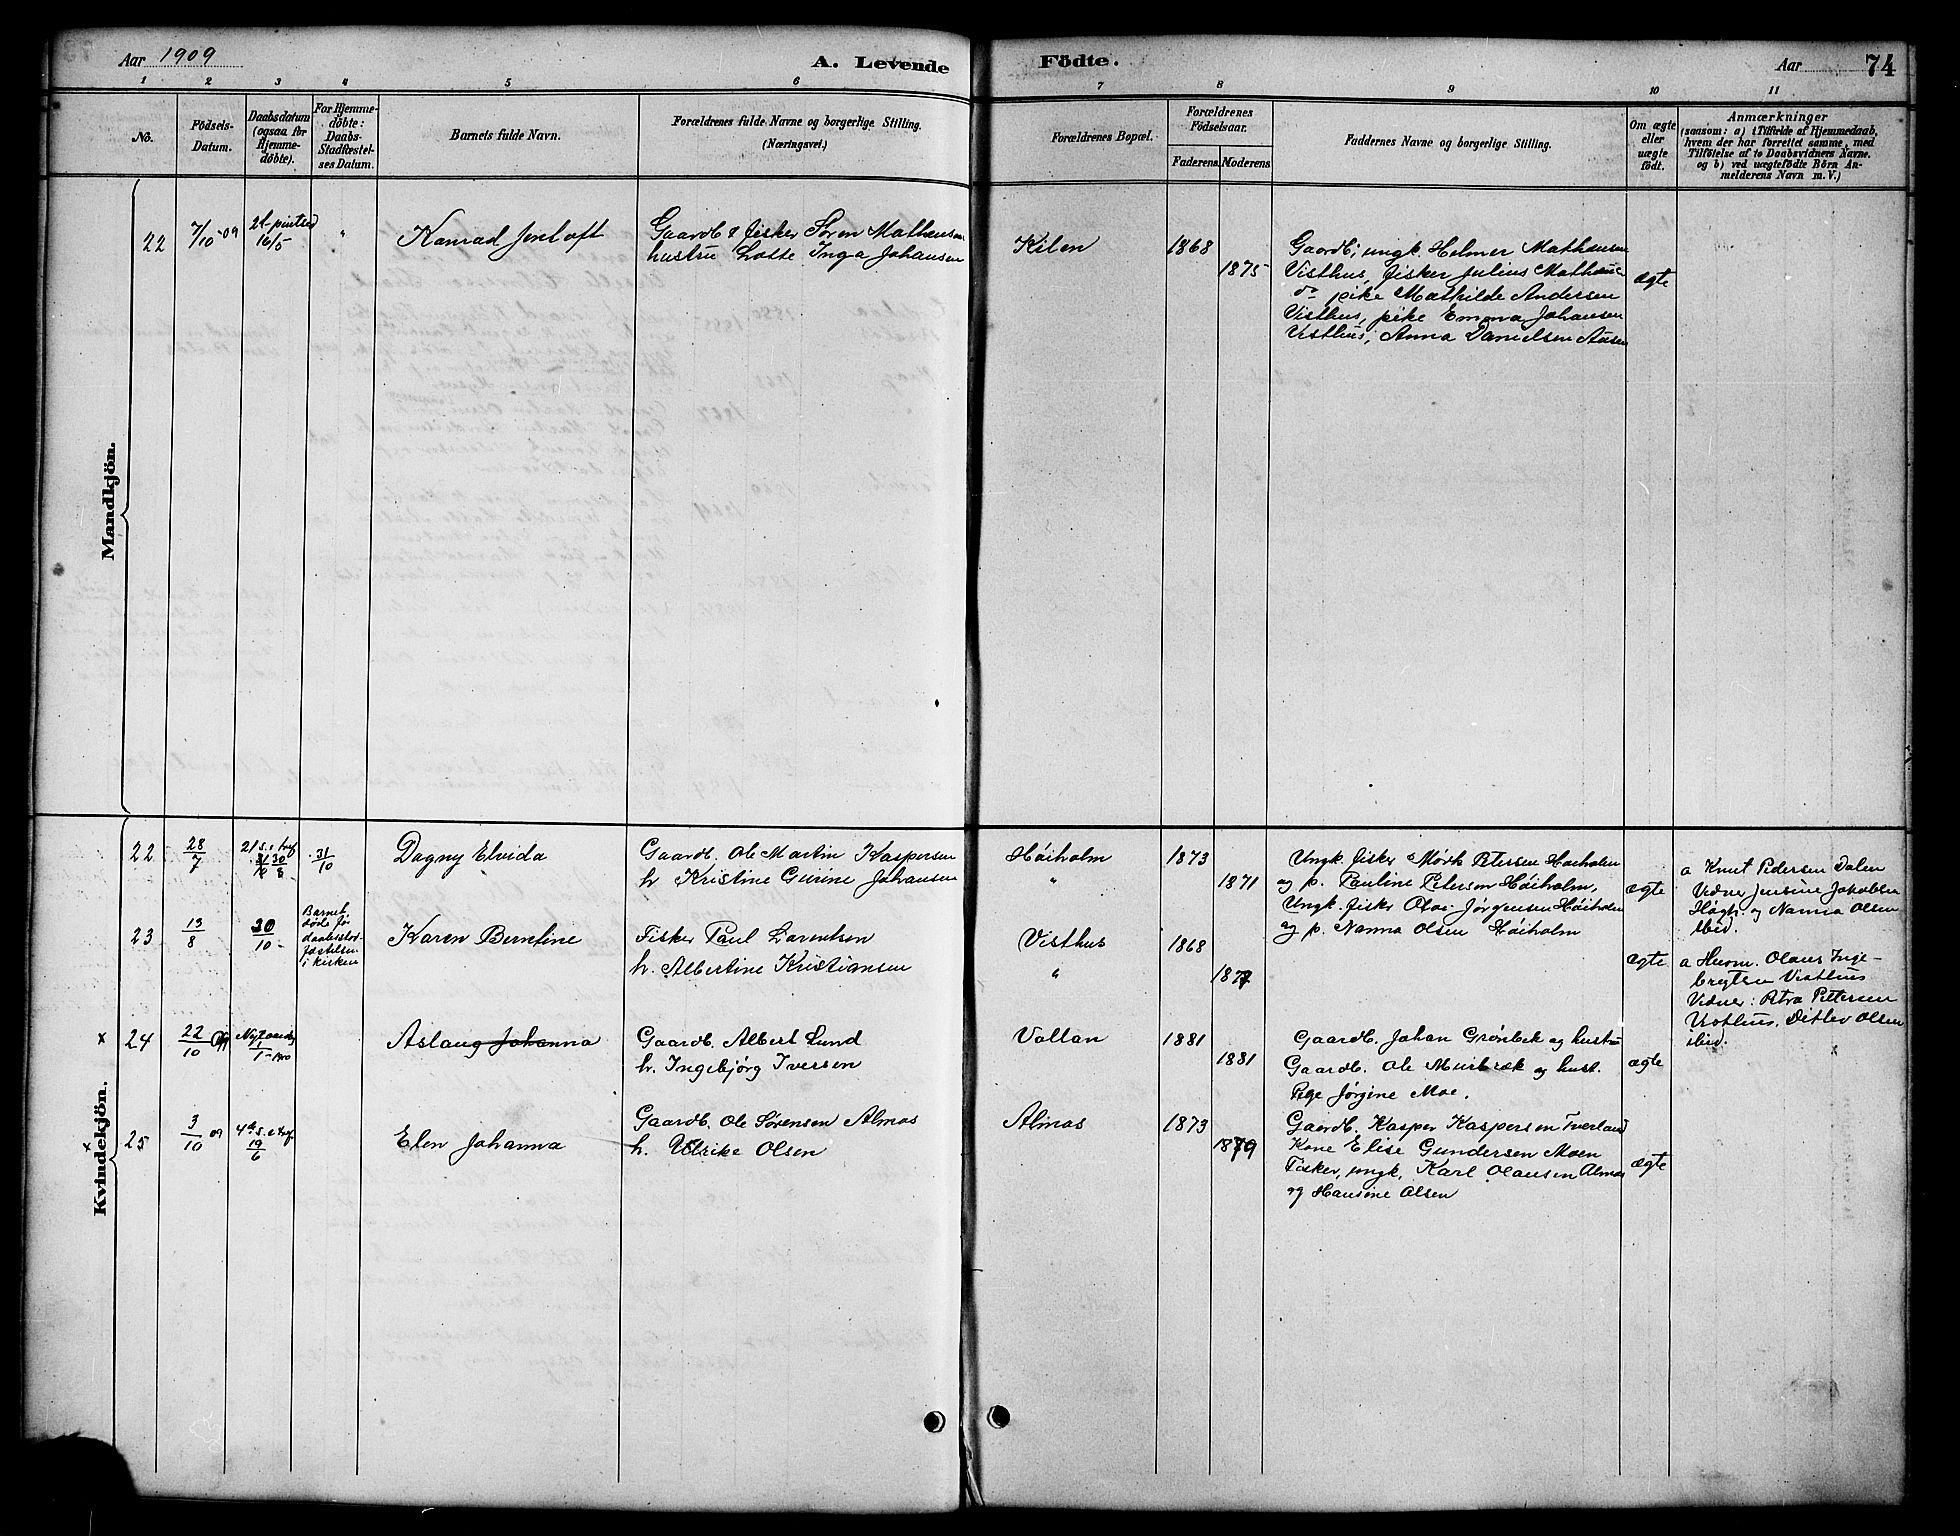 Aar 1909
A. Levende
Födte.
Aar
74
1 2 3 4 5 6 7 8 9 10 11
No.
Födsels-
Datum.
Daabsdatum
(ogsaa for
Hjemme-
döbte).
For Hjemme-
döbte:
Daabs-
Stadfæstel-
ses Datum.
Barnets fulde Navn.
Forældrenes fulde Navne og borgerlige Stilling.
(Næringsvei.)
Forældrenes Bopæl.
Forældrenes
Födselsaar.
Faderens. Moderens
Faddernes Navne og borgerlige Stilling.
Om ægte
eller
uægte
födt.
Anmærkninger
(saasom: a) i Tilfælde af Hjemmedaab,
hvem der har forrettet samme, med
Tilföielse af to Daabsvidners Navne.
og b) ved uægtefödte Börn An-
melderens Navn m. V.)
Mandkjön.
22
7/10 09
16/5
"
Konrad
Gaardb & fisker Søren Mathæusen
hustru Lotte Inga Johansen
Kilen
1868
1875
Gaardb; ungk. Helmer Mathæusen
Visthus, fisker Julius Mathæus
do pike Mathilde Andersen
Visthus, pike Emma Johansen
Visthus; Anna Danielsen Ausen
ægte
Kvindekjön.
22
28/7
21 s. e. tref
31/10 30/8
31/10
Dagny Elvida
Gaardb. Ole Martin Kaspersen
h. Kristine Gurine Johansen
Høiholm
"
1873
1871
Ungk. fisker Mørk Petersen Høiholm
og p. Pauline Petersen Høiholm,
Ungk. fisker Olai Jørgensen Høiholm
og p. Nanna Olsen Høiholm
ægte
a Knut Pedersen Dalen
Vidner Jensine Jakobsen
Høgh. og Nanna Olsen
ibid.
23
13/8
30/10
Barnet
døde før
daabsstad-
fæstelsen
i kirken
Karen Berntine
Fisker Paul Larentsen
h. Albertine Kristiansen
Visthus
"
1868
ægte
a Husm. Olaus Inge-
brigtsen Visthus
Vidner: Petra Pettersen
Visthus. Ditlev Olsen
ibid.
x
24
22/10 09
Nytaarsdag
1/1 - 1910
Aslaug Johanna
Gaardb. Albert Lund
h. Ingebjørg Iversen
Valtan
1881
1881
Gaardb. Johan Grønbek og hustru
Gaardb. Ole Murbræk og hust.
Pige Jørgine Moe.
ægte
x
x
25
3/10 09
4de s. e tref
19/6
Elen Johanna
Gaardb. Ole Sørensen Almas
h. Ulrike Olsen
Almas
1873
1879
Gaardb. Kasper Kaspersen Tverland
Kone Elise Gundersen Moen
Fisker, ungk, Karl Olausen Almas
og Hansine Olsen
ægte